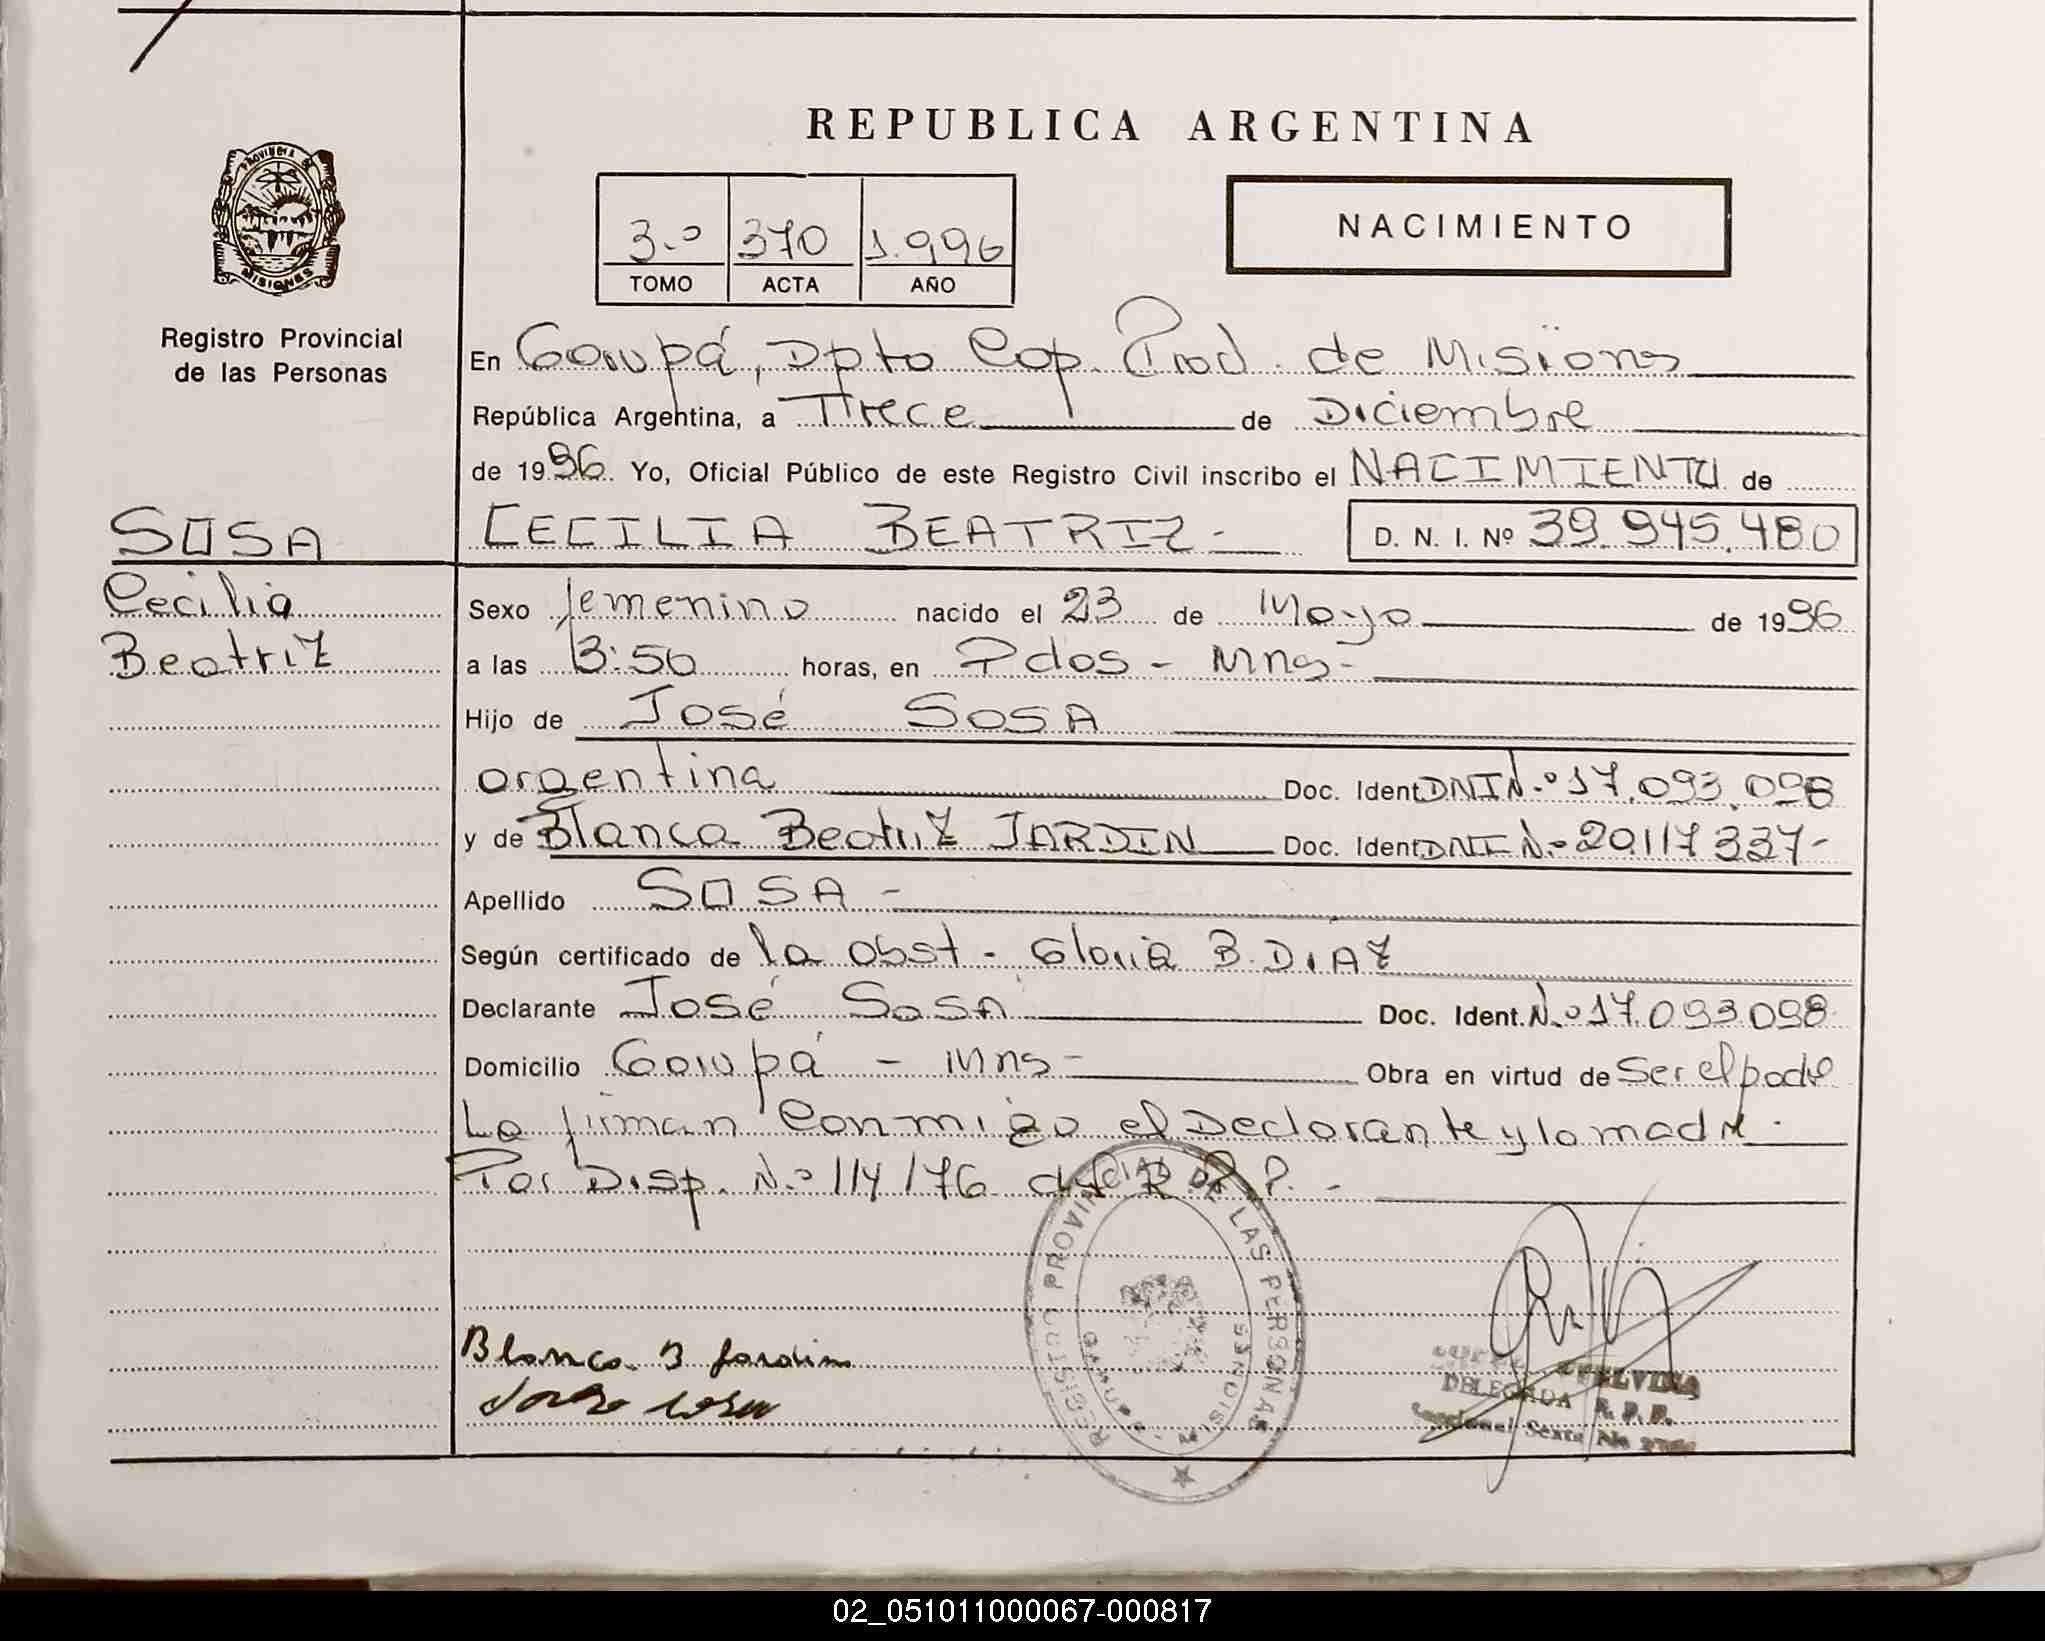 REPUBLICA ARGENTINA
PROVINCIA DE
MISIONES
Registro Provincial
de las Personas
3.º 370 1.996
TOMO ACTA AÑO
NACIMIENTO
En Garupá, Dpto Cap. Prov. de Misiones
República Argentina, a Trece de Diciembre
de 1996. Yo, Oficial Público de este Registro Civil inscribo el NACIMIENTO de
SOSA
CECILIA BEATRIZ- D. N. I. Nº 39.945.480
Cecilia
Beatriz
Sexo femenino nacido el 23 de Mayo de 1996
a las 13:50 horas, en Pdas - Mns-
Hijo de José SOSA
argentina Doc. Ident. DNI N.º 17.093.098
y de Blanca Beatriz JARDIN Doc. Ident. DNI N.º 20.117 337-
Apellido SOSA -
Según certificado de la Obst - Gloria B. DIAZ
Declarante José SOSA Doc. Ident. N.º 17.093.098
Domicilio Garupá - Mns- Obra en virtud de Ser el padre
La firman conmigo el Declarante y la madre.
Por Disp. N.º 114/76 del R.P.P. -
REGISTRO PROVINCIAL DE LAS PERSONAS
GARUPA - MISIONES
Blanca B Jardin
DELEGADA R. P. P.
Seccional Sexta No
02_051011000067-000817